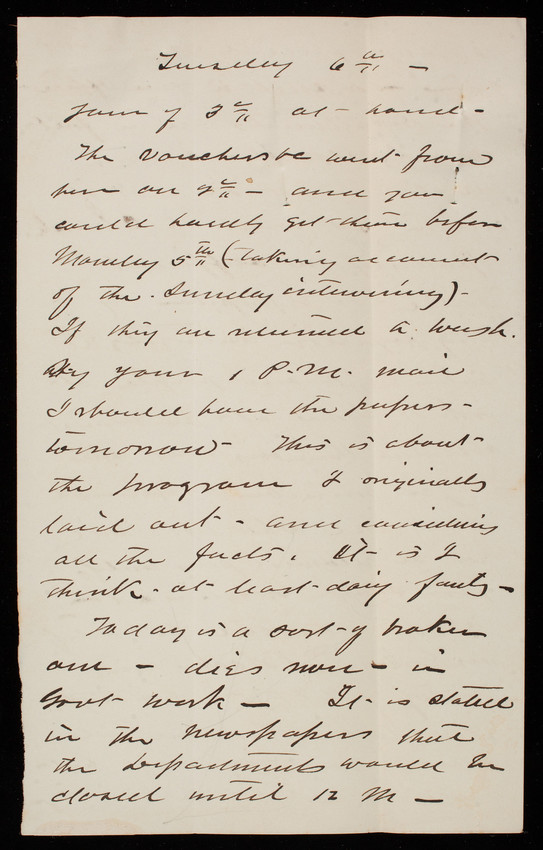 Tuesday 6 th/11 -
Yours of 3 d/11 at hand -
The vouchers &c went from
here on 2 d/11 - and you
could hardly get them before
Monday 5 th/11 (taking account
of the Sunday intervening) -
If they are returned to Wash.
by your 1 P.M. mail
I should have the papers -
tomorrow - This is about
the program I originally
laid out - and considering
all the facts, it is I
think - at least doing fairly -
Today is a sort of broken
one - dies non - in
Govt work - It is stated
in the newspapers that
the Departments would be
closed until 12 M -